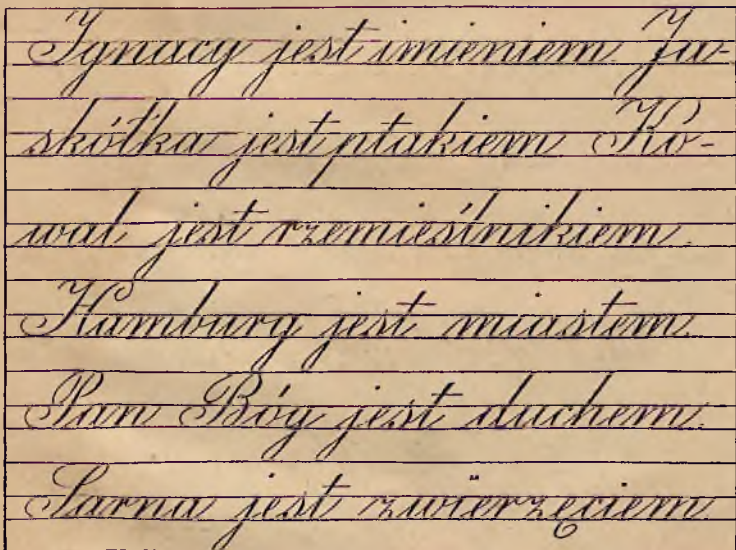 Ignacy jest imieniem Ja-
skółka jest ptakiem Ko-
wal jest rzemieślnikiem.
Hamburg jest miastem.
Pan Bóg jest duchem.
Sarna jest zwierzęciem